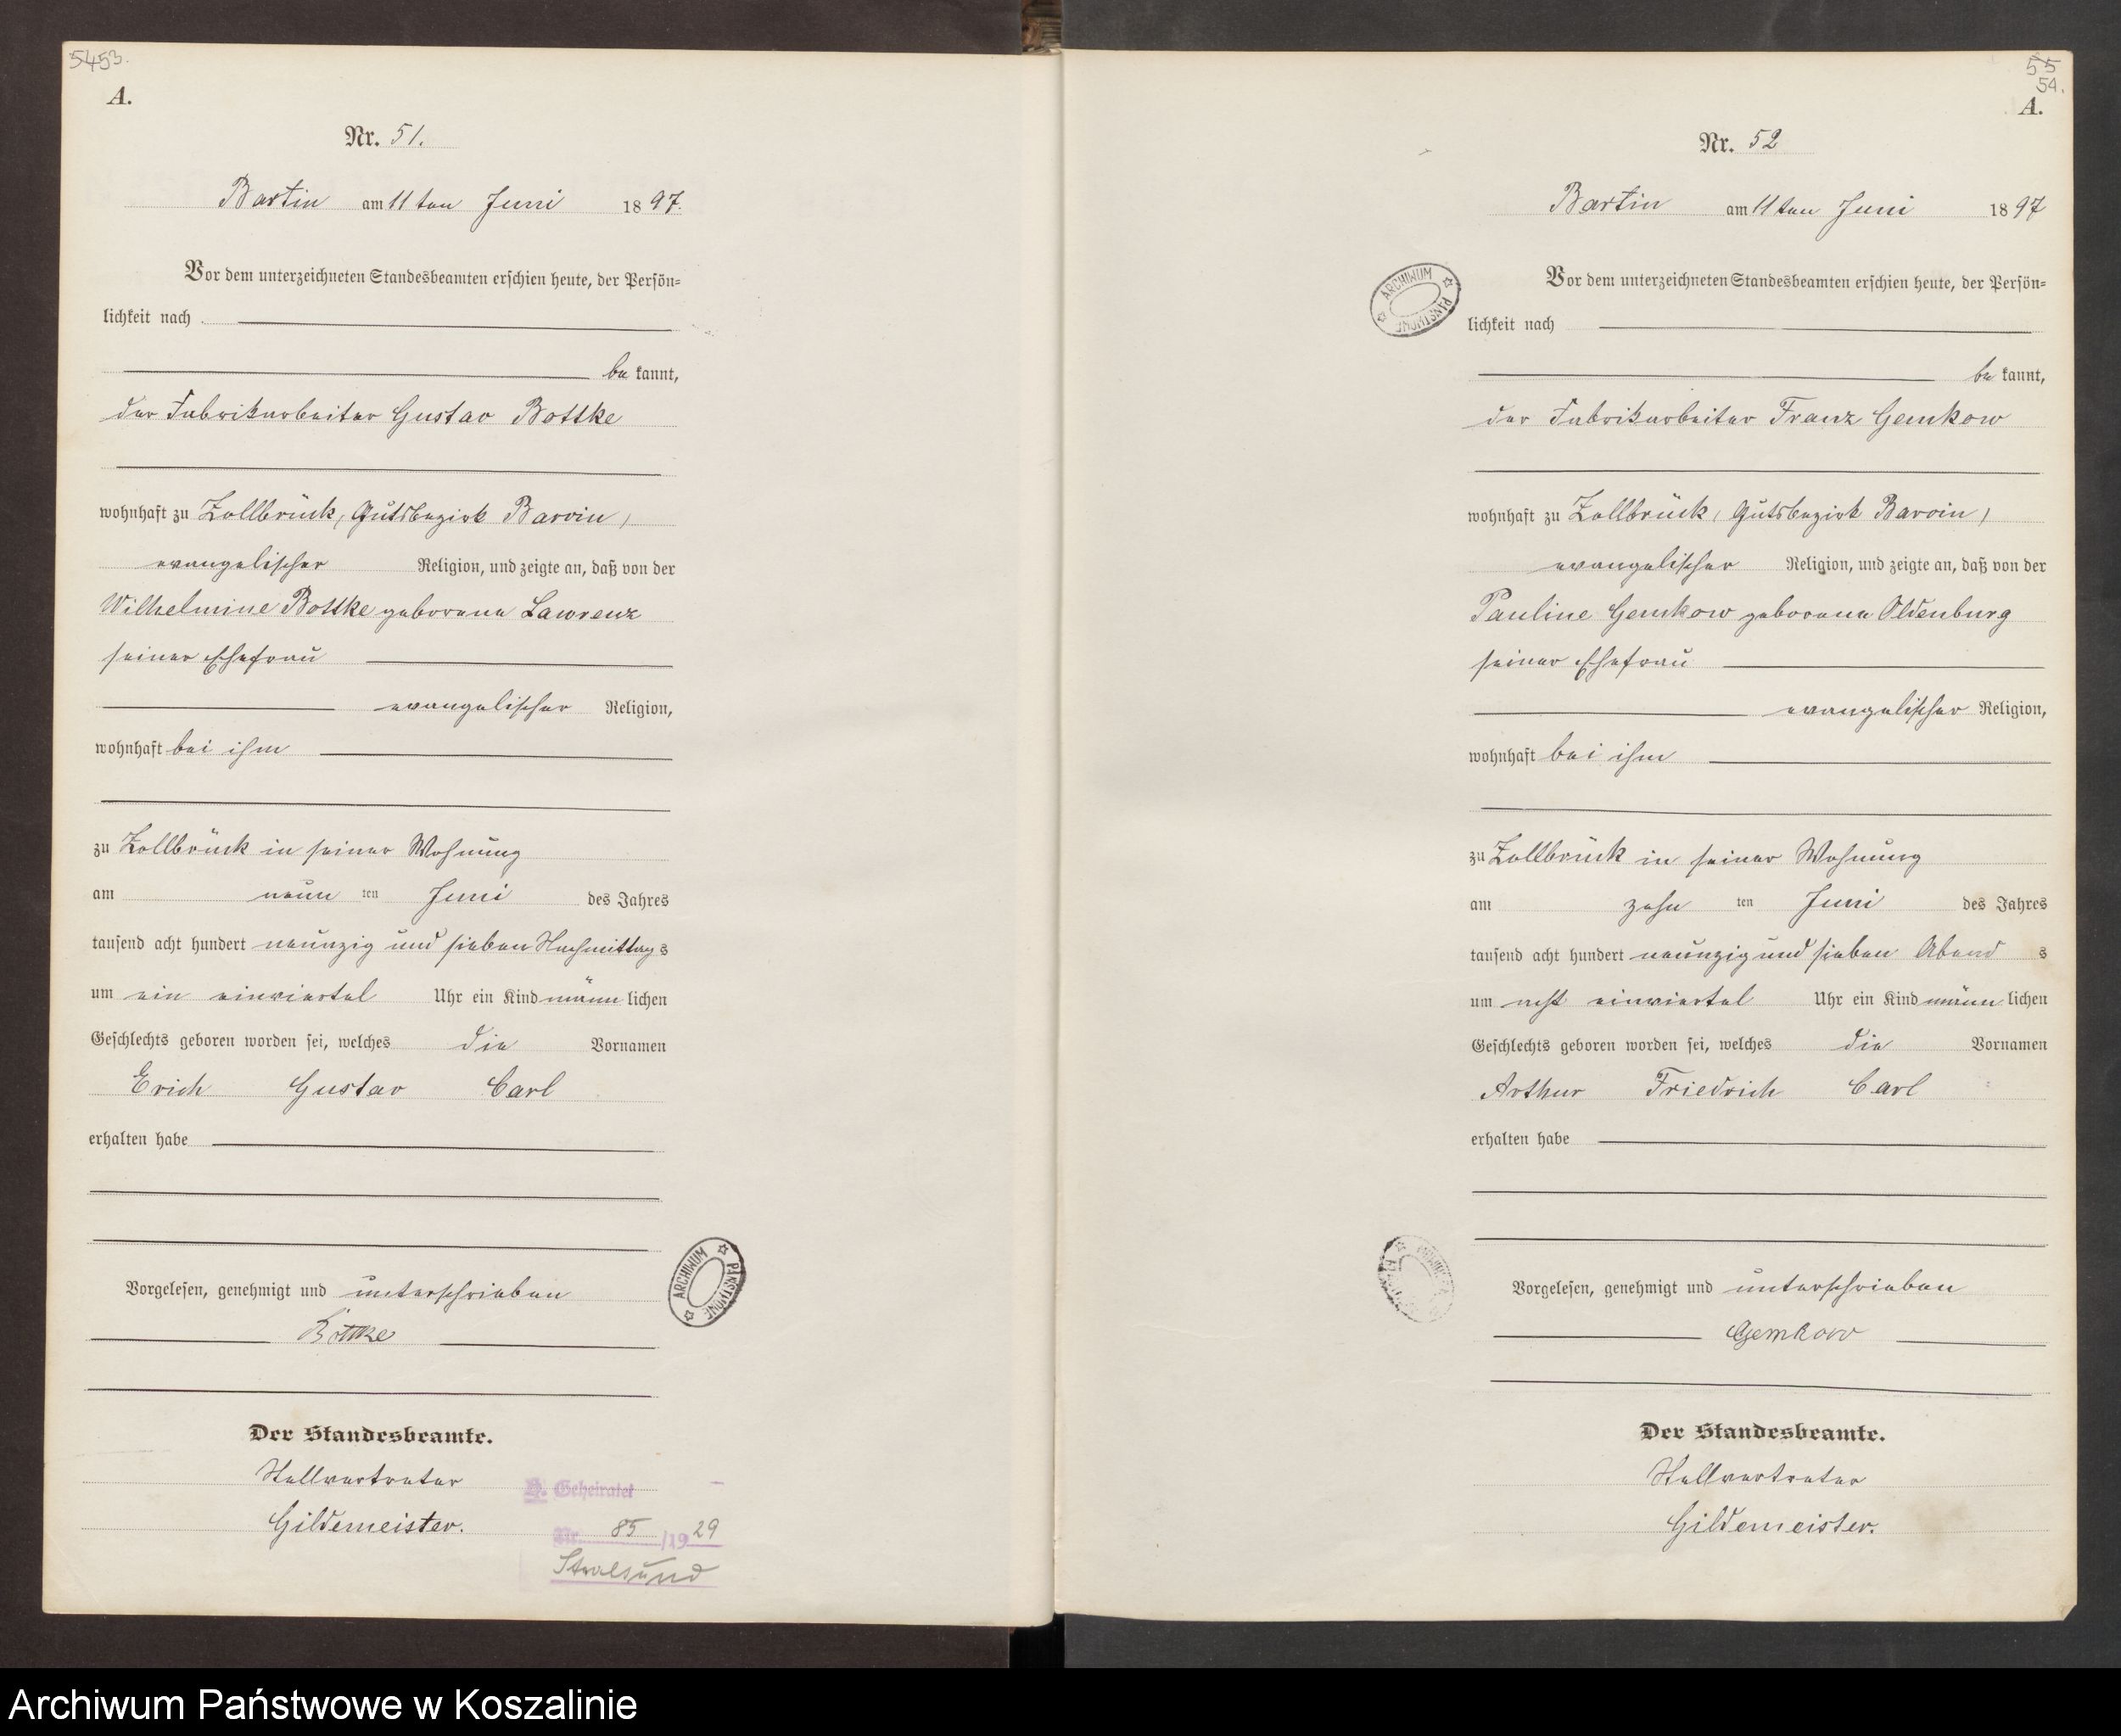 5453.
A.
Nr. 51.
Bartin am 11ten Juni 1897.
Vor dem unterzeichneten Standesbeamten erschien heute, der Persön=
lichkeit nach
bekannt,
der Fabrikarbeiter Gustav Bottke
wohnhaft zu Zollbrück, Gutsbezirk Barvin,
evangelischer Religion, und zeigte an, daß von der
Wilhelmine Bottke geborene Lawrenz
seiner Ehefrau
evangelischer Religion,
wohnhaft bei ihm
zu Zollbrück in seiner Wohnung
am neun ten Juni des Jahres
tausend acht hundert neunzig und sieben Nachmittags
um ein einviertel Uhr ein Kind männlichen
Geschlechts geboren worden sei, welches die Vornamen
Erich Gustav Carl
erhalten habe
Vorgelesen, genehmigt und unterschrieben
Bottke
Der Standesbeamte.
Stellvertreter
Gildemeister.
Geheiratet
Nr. 85/1929
Stralsund
ARCHIWUM PAŃSTWOWE
55
54.
A.
Nr. 52
Bartin am 11ten Juni 1897
Vor dem unterzeichneten Standesbeamten erschien heute, der Persön=
lichkeit nach
bekannt,
der Fabrikarbeiter Franz Gemkow
wohnhaft zu Zollbrück, Gutsbezirk Barvin,
evangelischer Religion, und zeigte an, daß von der
Pauline Gemkow geborene Oldenburg
seiner Ehefrau
evangelischer Religion,
wohnhaft bei ihm
zu Zollbrück in seiner Wohnung
am zehn ten Juni des Jahres
tausend acht hundert neunzig und sieben Abends
um acht einviertel Uhr ein Kind männlichen
Geschlechts geboren worden sei, welches die Vornamen
Arthur Friedrich Carl
erhalten habe
Vorgelesen, genehmigt und unterschrieben
Gemkow
Der Standesbeamte.
Stellvertreter
Gildemeister.
ARCHIWUM PAŃSTWOWE
Archiwum Państwowe w Koszalinie